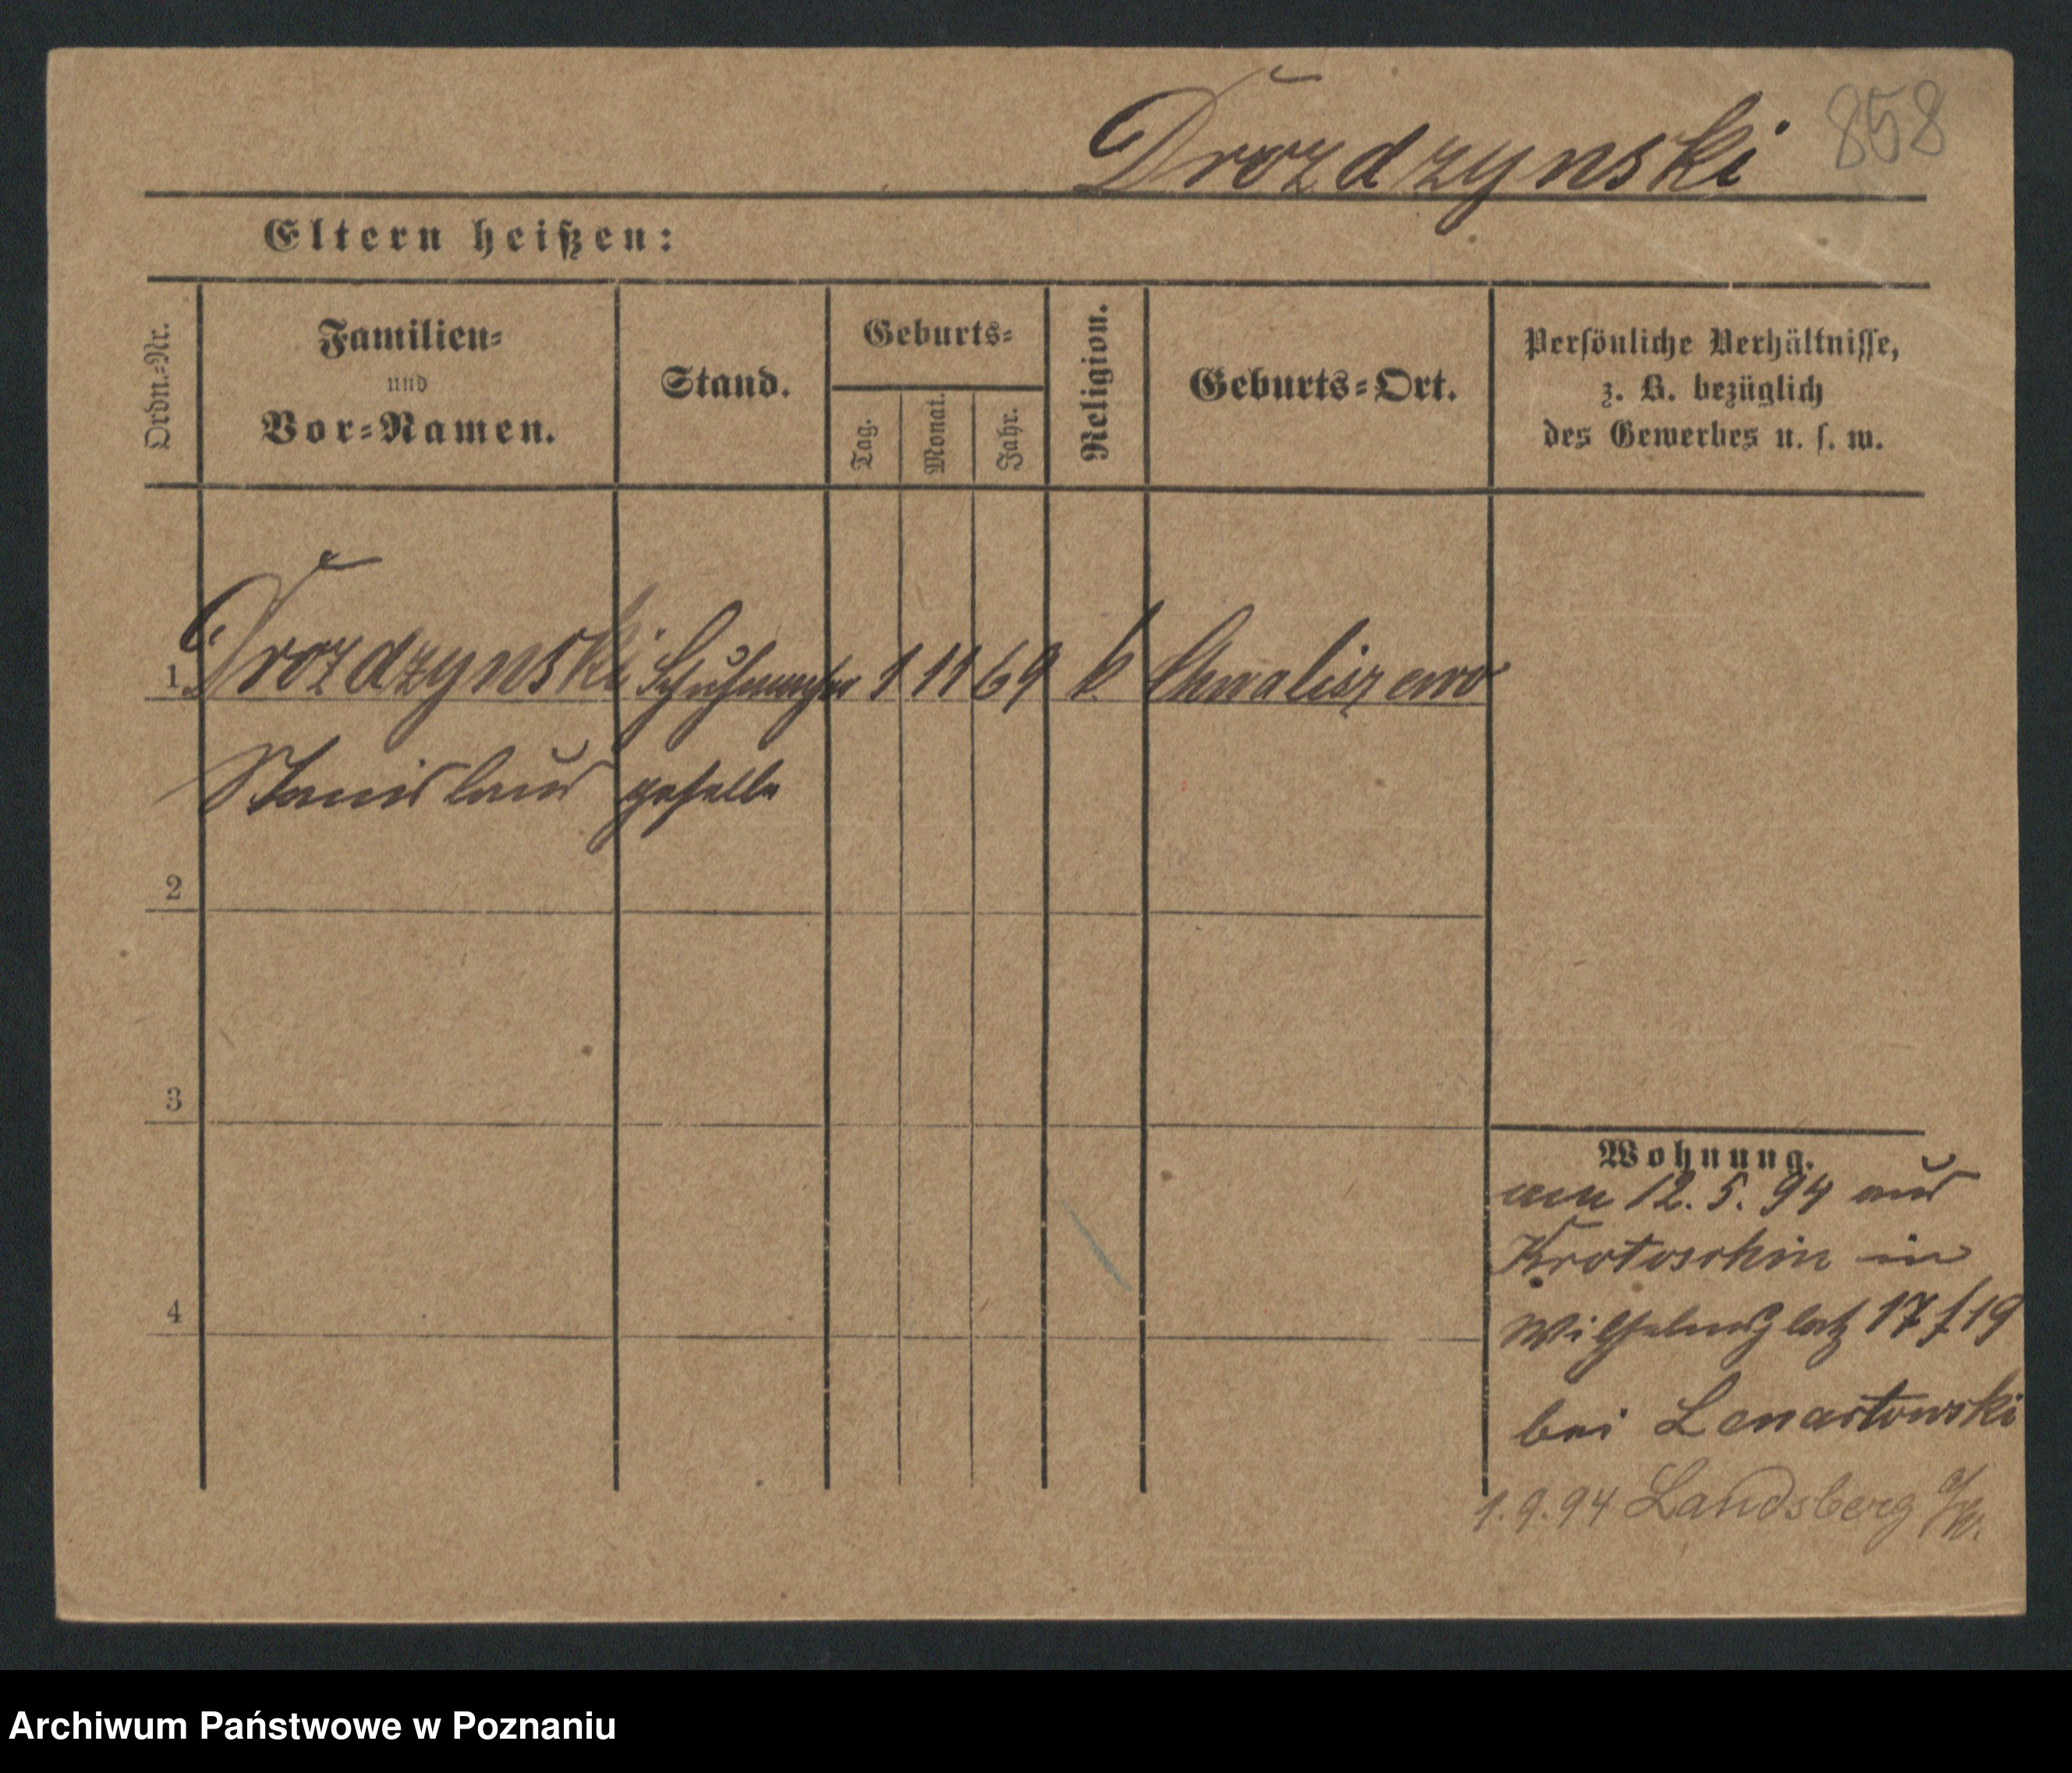 Drozdzynski 858
Eltern heißen:
Ordn.-Nr.
Familien-
und
Vor-Namen.
Stand.
Geburts-
Tag.
Monat.
Jahr.
Religion.
Geburts-Ort.
Persönliche Verhältnisse,
z. B. bezüglich
des Gewerbes u. s. w.
1 Drozdzynski Schuhmacher 1 11 69 k. Chwaliszewo
Stanislaus geselle
2
3
4
Wohnung.
am 12. 5. 94 aus
Krotoschin in
Wilhelmsplatz 17/19
bei Lenartowski
1.9.94 Landsberg a/W.
Archiwum Państwowe w Poznaniu